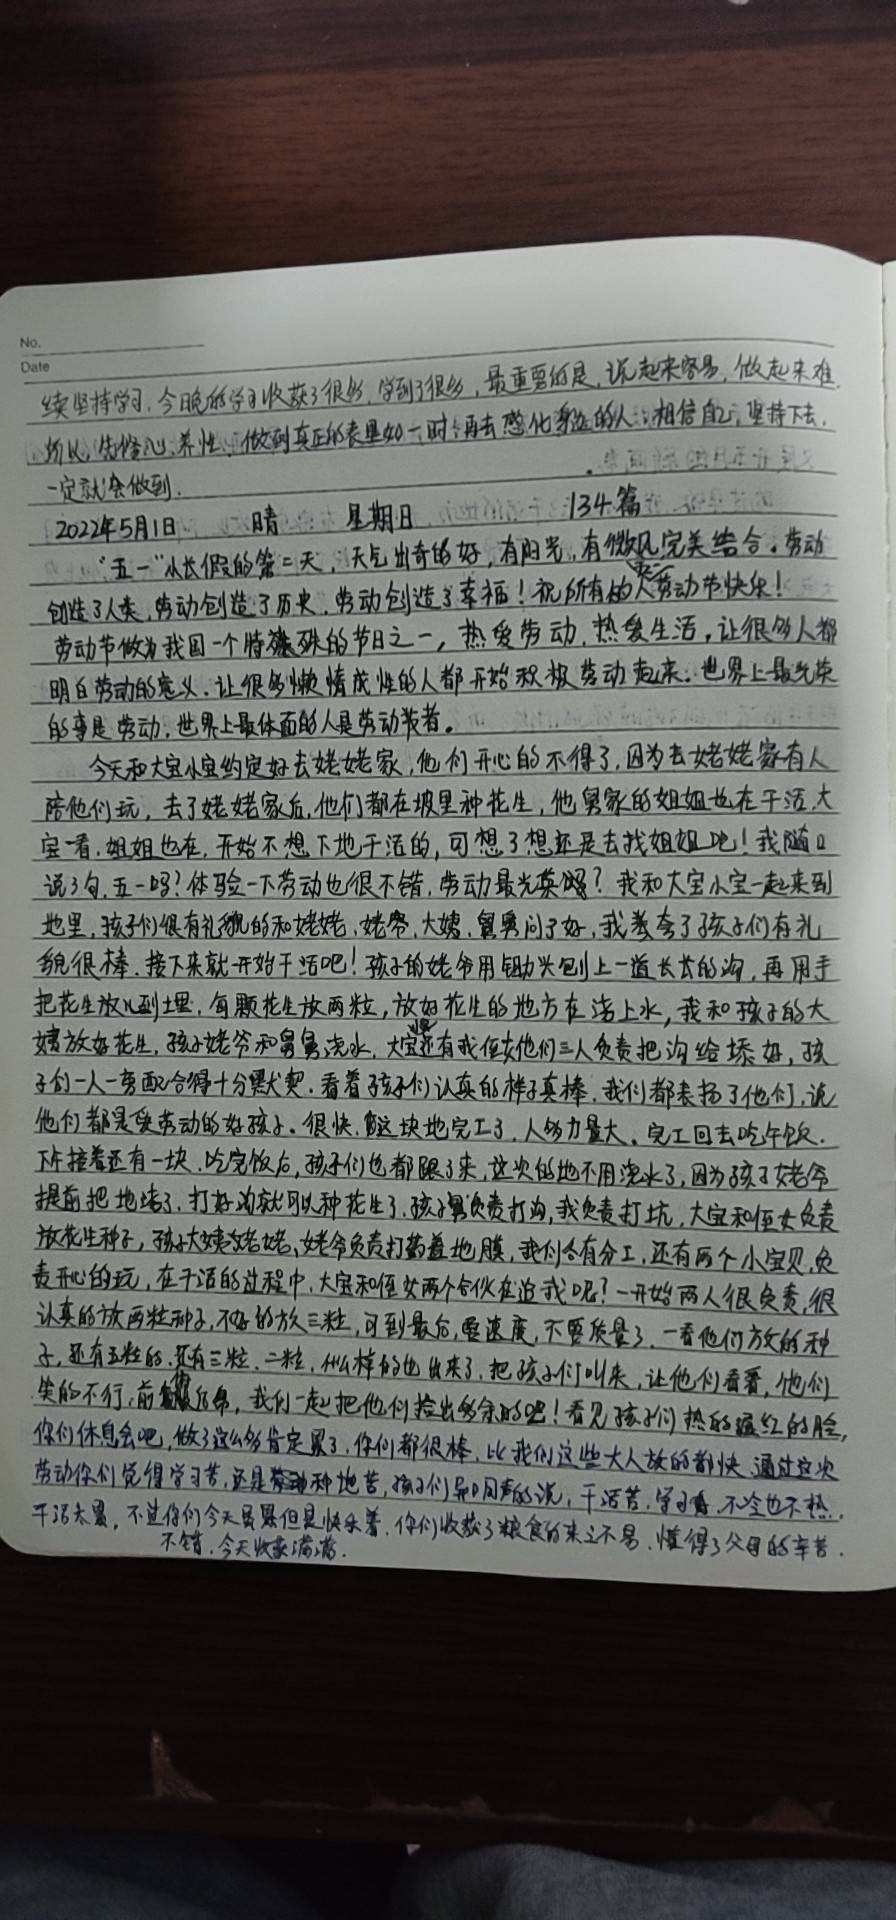 No.
Date
续坚持学习.今晚的学习收获了很多,学到了很多,最重要的是,说起来容易,做起来难.
所以,先修心、养性,做到真正的表里如一时,再去感化身边的人,相信自己,坚持下去,
一定就会做到.
2022年5月1日 晴 星期日 134篇
"五一"小长假的第二天,天气出奇的好,有阳光,有微风,完美结合。劳动
创造了人类,劳动创造了历史,劳动创造了幸福!祝所有的人劳动节快乐!
劳动节做为我国一个特殊的节日之一,热爱劳动,热爱生活,让很多人都
明白劳动的意义.让很多懒惰成性的人都开始积极劳动起来.世界上最光荣
的事是劳动,世界上最体面的人是劳动者。
今天和大宝小宝约定好去姥姥家,他们开心的不得了,因为去姥姥家有人
陪他们玩,去了姥姥家后,他们都在坡里种花生,他舅家的姐姐也在干活,大
宝一看,姐姐也在,开始不想下地干活的,可想了想还是去找姐姐吧!我随口
说了句,五一吗?体验一下劳动也很不错,劳动最光荣吗?我和大宝小宝一起来到
地里,孩子们很有礼貌的和姥姥、姥爷、大姨、舅舅问了好,我夸夸了孩子们有礼
貌很棒.接下来就开始干活吧!孩子的姥爷用锄头刨上一道长长的沟,再用手
把花生放儿到埋,每颗花生放两粒,放好花生的地方在浇上水,我和孩子的大
姨放好花生,孩子姥爷和舅舅浇水,大宝还有我侄女他们三人负责把沟给填好,孩
子们一人一旁配合得十分默契.看着孩子们认真的样子真棒,我们都表扬了他们,说
他们都是爱劳动的好孩子。很快,这块地完工了,人多力量大。完工回去吃午饭.
下午接着还有一块,吃完饭后,孩子们也都跟了来,这次的地不用浇水了,因为孩子姥爷
提前把地浇了,打好沟就可以种花生了.孩子舅负责打沟,我负责打坑,大宝和侄女负责
放花生种子,孩子大姨姥姥、姥爷负责打药盖地膜,我们各有分工,还有两个小宝贝,负
责开心的玩,在干活的过程中,大宝和侄女两个合伙在追我呢?一开始两人很负责,很
认真的放两粒种子,不好的放三粒,可到最后,要速度,不要质量了,一看他们放的种
子,还有五粒的,还有三粒、二粒,什么样的也出来了,把孩子们叫来,让他们看看,他们
笑的不行,我们一起把他们捡出多余的吧!看见孩子们热的通红的脸,
你们休息会吧,做了这么多肯定累了.你们都很棒,比我们这些大人放的都快.通过这次
劳动你们觉得学习苦,还是种地苦,孩子们异口同声的说,干活苦.学习,不冷也不热.
干活太累,不过你们今天虽累但是快乐着.你们收获了粮食的来之不易.懂得了父母的辛苦.
不错.今天收获满满.